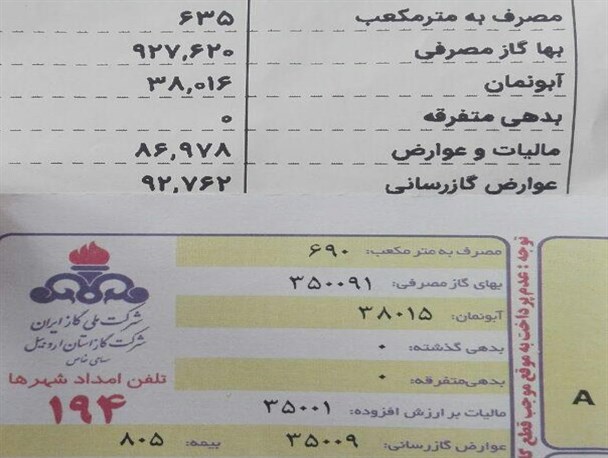 مصرف به مترمکعب ۶۳۵
بها گاز مصرفی ۹۲۷,۶۲۰
آبونمان ۳۸,۰۱۶
بدهی متفرقه ۰
مالیات و عوارض ۸۶,۹۷۸
عوارض گازرسانی ۹۲,۷۶۲
مصرف به متر مکعب: ۶۹۰
بهای گاز مصرفی: ۳۵۰۰۹۱
آبونمان: ۳۸۰۱۵
بدهی گذشته: ۰
بدهی متفرقه: ۰
مالیات بر ارزش افزوده: ۳۵۰۰۱
عوارض گازرسانی: ۳۵۰۰۹ بیمه: ۸۰۵
شرکت ملی گاز ایران
شرکت گاز استان اردبیل
سهامی خاص
تلفن امداد شهرها
۱۹۴
توجه: عدم پرداخت به موقع موجب قطع
A